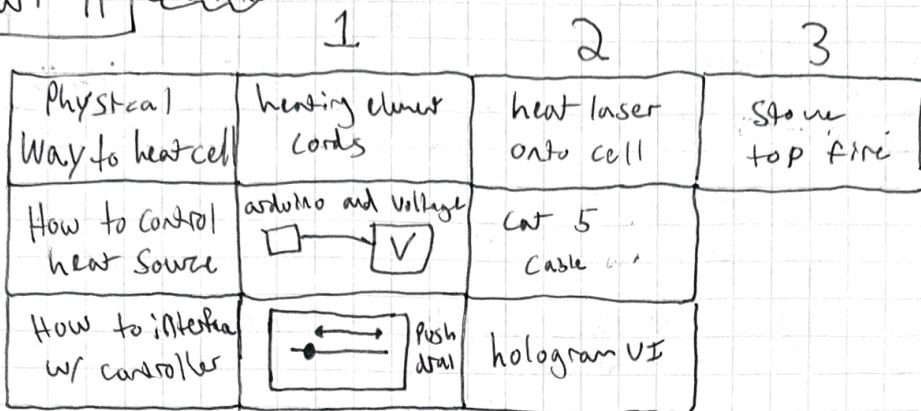 1
2
3
Physical
Way to heat cell
heating element
cords
heat laser
onto cell
Stove
top fire
How to control
heat source
arduino and voltage
V
cat 5
cable
How to
w/ controller
Push
dial
hologram UI